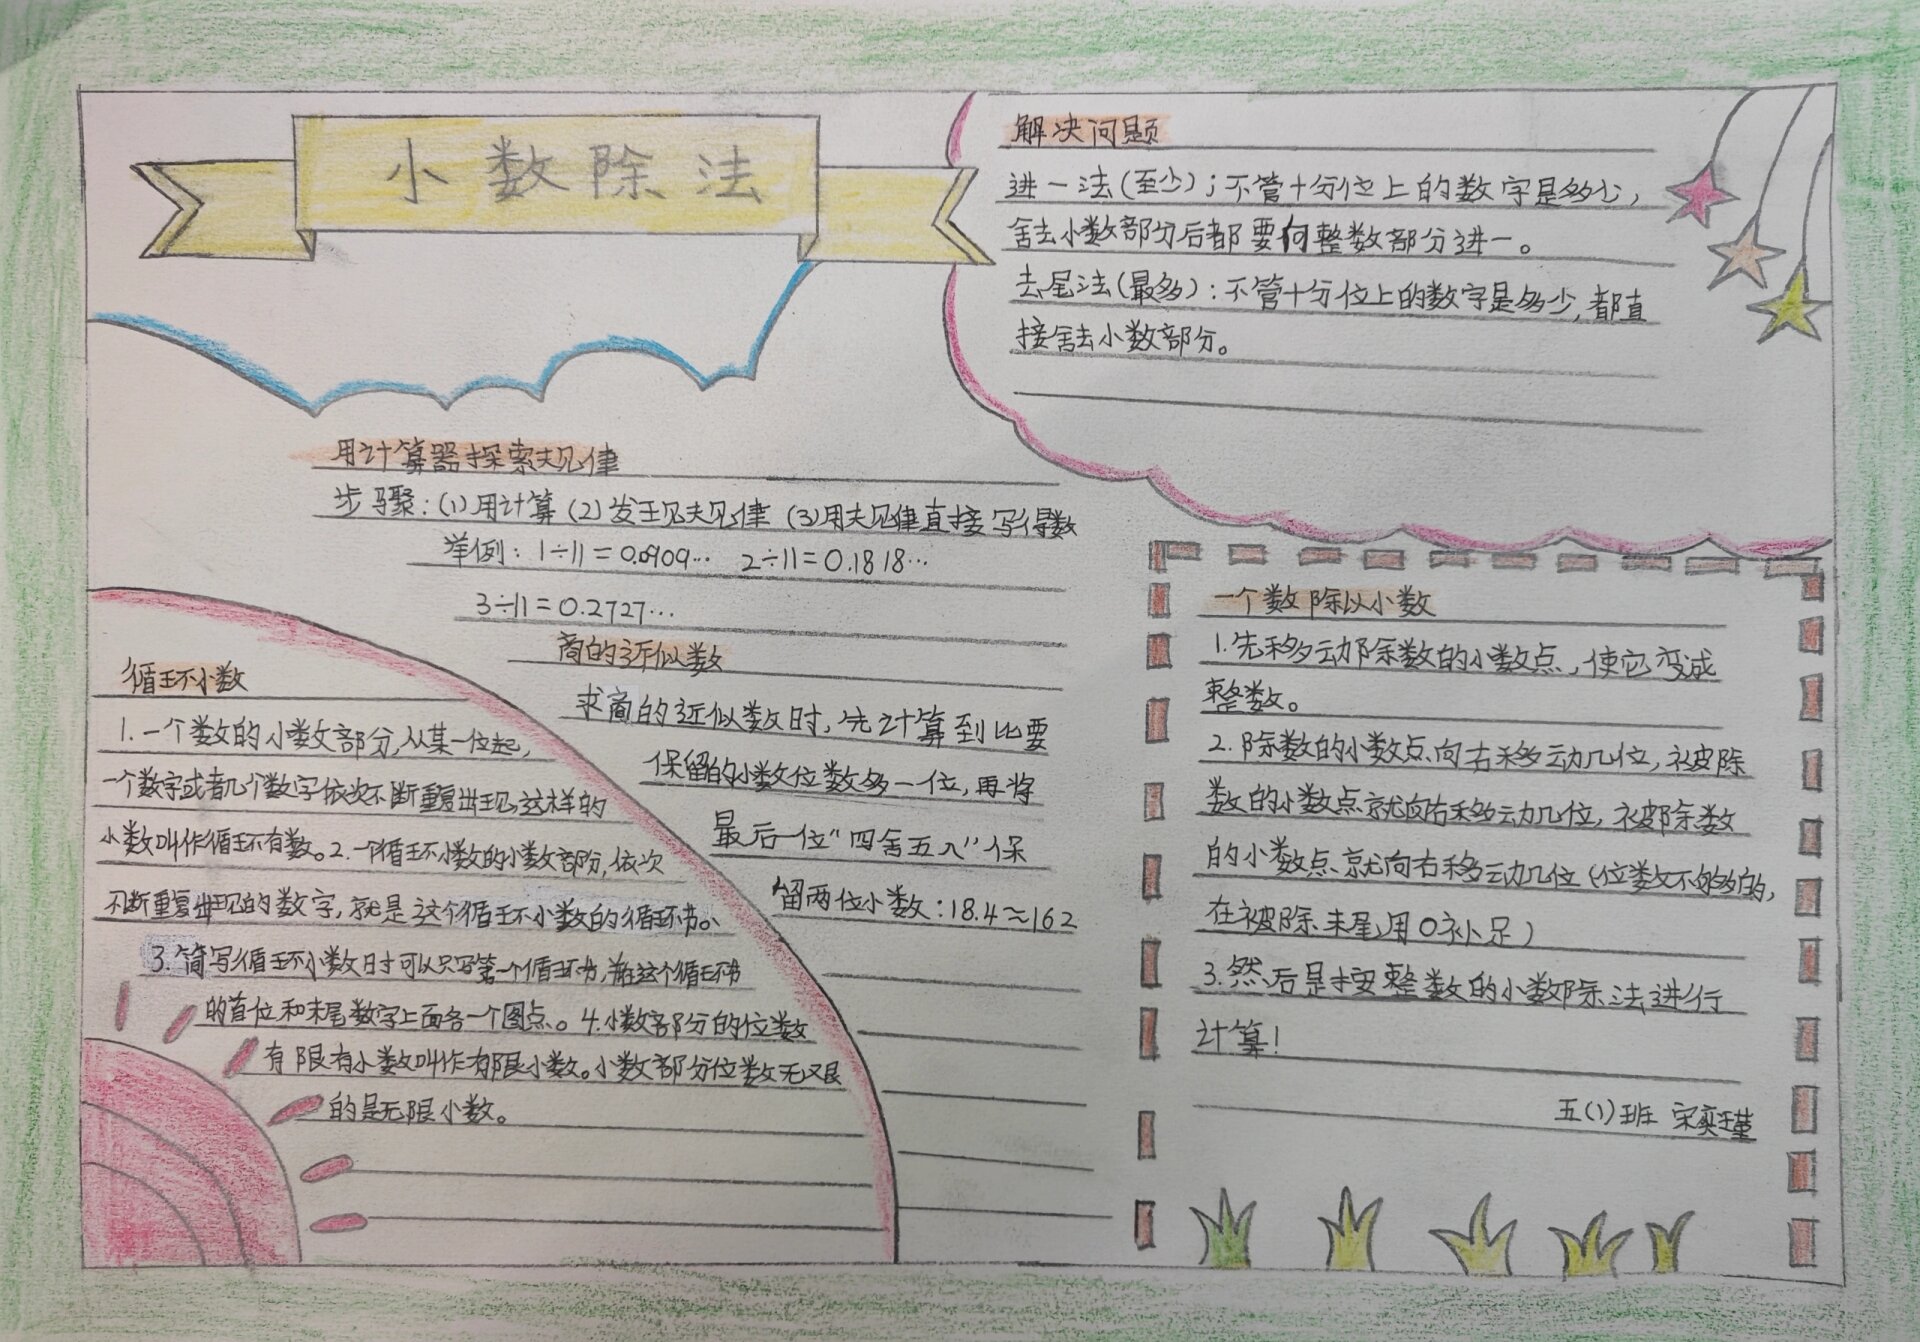 小数除法
解决问题
进一法(至少);不管十分位上的数字是多少,
舍去小数部分后都要向整数部分进一。
去尾法(最多):不管十分位上的数字是多少,都直
接舍去小数部分。
用计算器探索规律
步骤:(1)用计算(2)发现规律(3)用规律直接写得数
举例:1÷11=0.0909… 2÷11=0.1818…
3÷11=0.2727…
商的近似数
求商的近似数时,先计算到比要
保留的小数位数多一位,再将
最后一位“四舍五入”保
留两位小数:18.4≈162
循环小数
1.一个数的小数部分,从某一位起,
一个数字或者几个数字依次不断重复出现,这样的
小数叫作循环有数。2.一个循环小数的小数部分,依次
不断重复出现的数字,就是这个循环小数的循环节。
3.简写循环小数时可以只写第一个循环节,并在这个循环节
的首位和末尾数字上面各一个圆点。4.小数部分的位数
有限有小数叫作有限小数。小数部分位数无限
的是无限小数。
一个数除以小数
1.先移动除数的小数点,使它变成
整数。
2.除数的小数点向右移动几位,被除
数的小数点就向右移动几位,被除数
的小数点就向右移动几位(位数不够的,
在被除末尾用0补足)
3.然后是按整数的小数除法进行
计算!
五(1)班 宋奕瑾